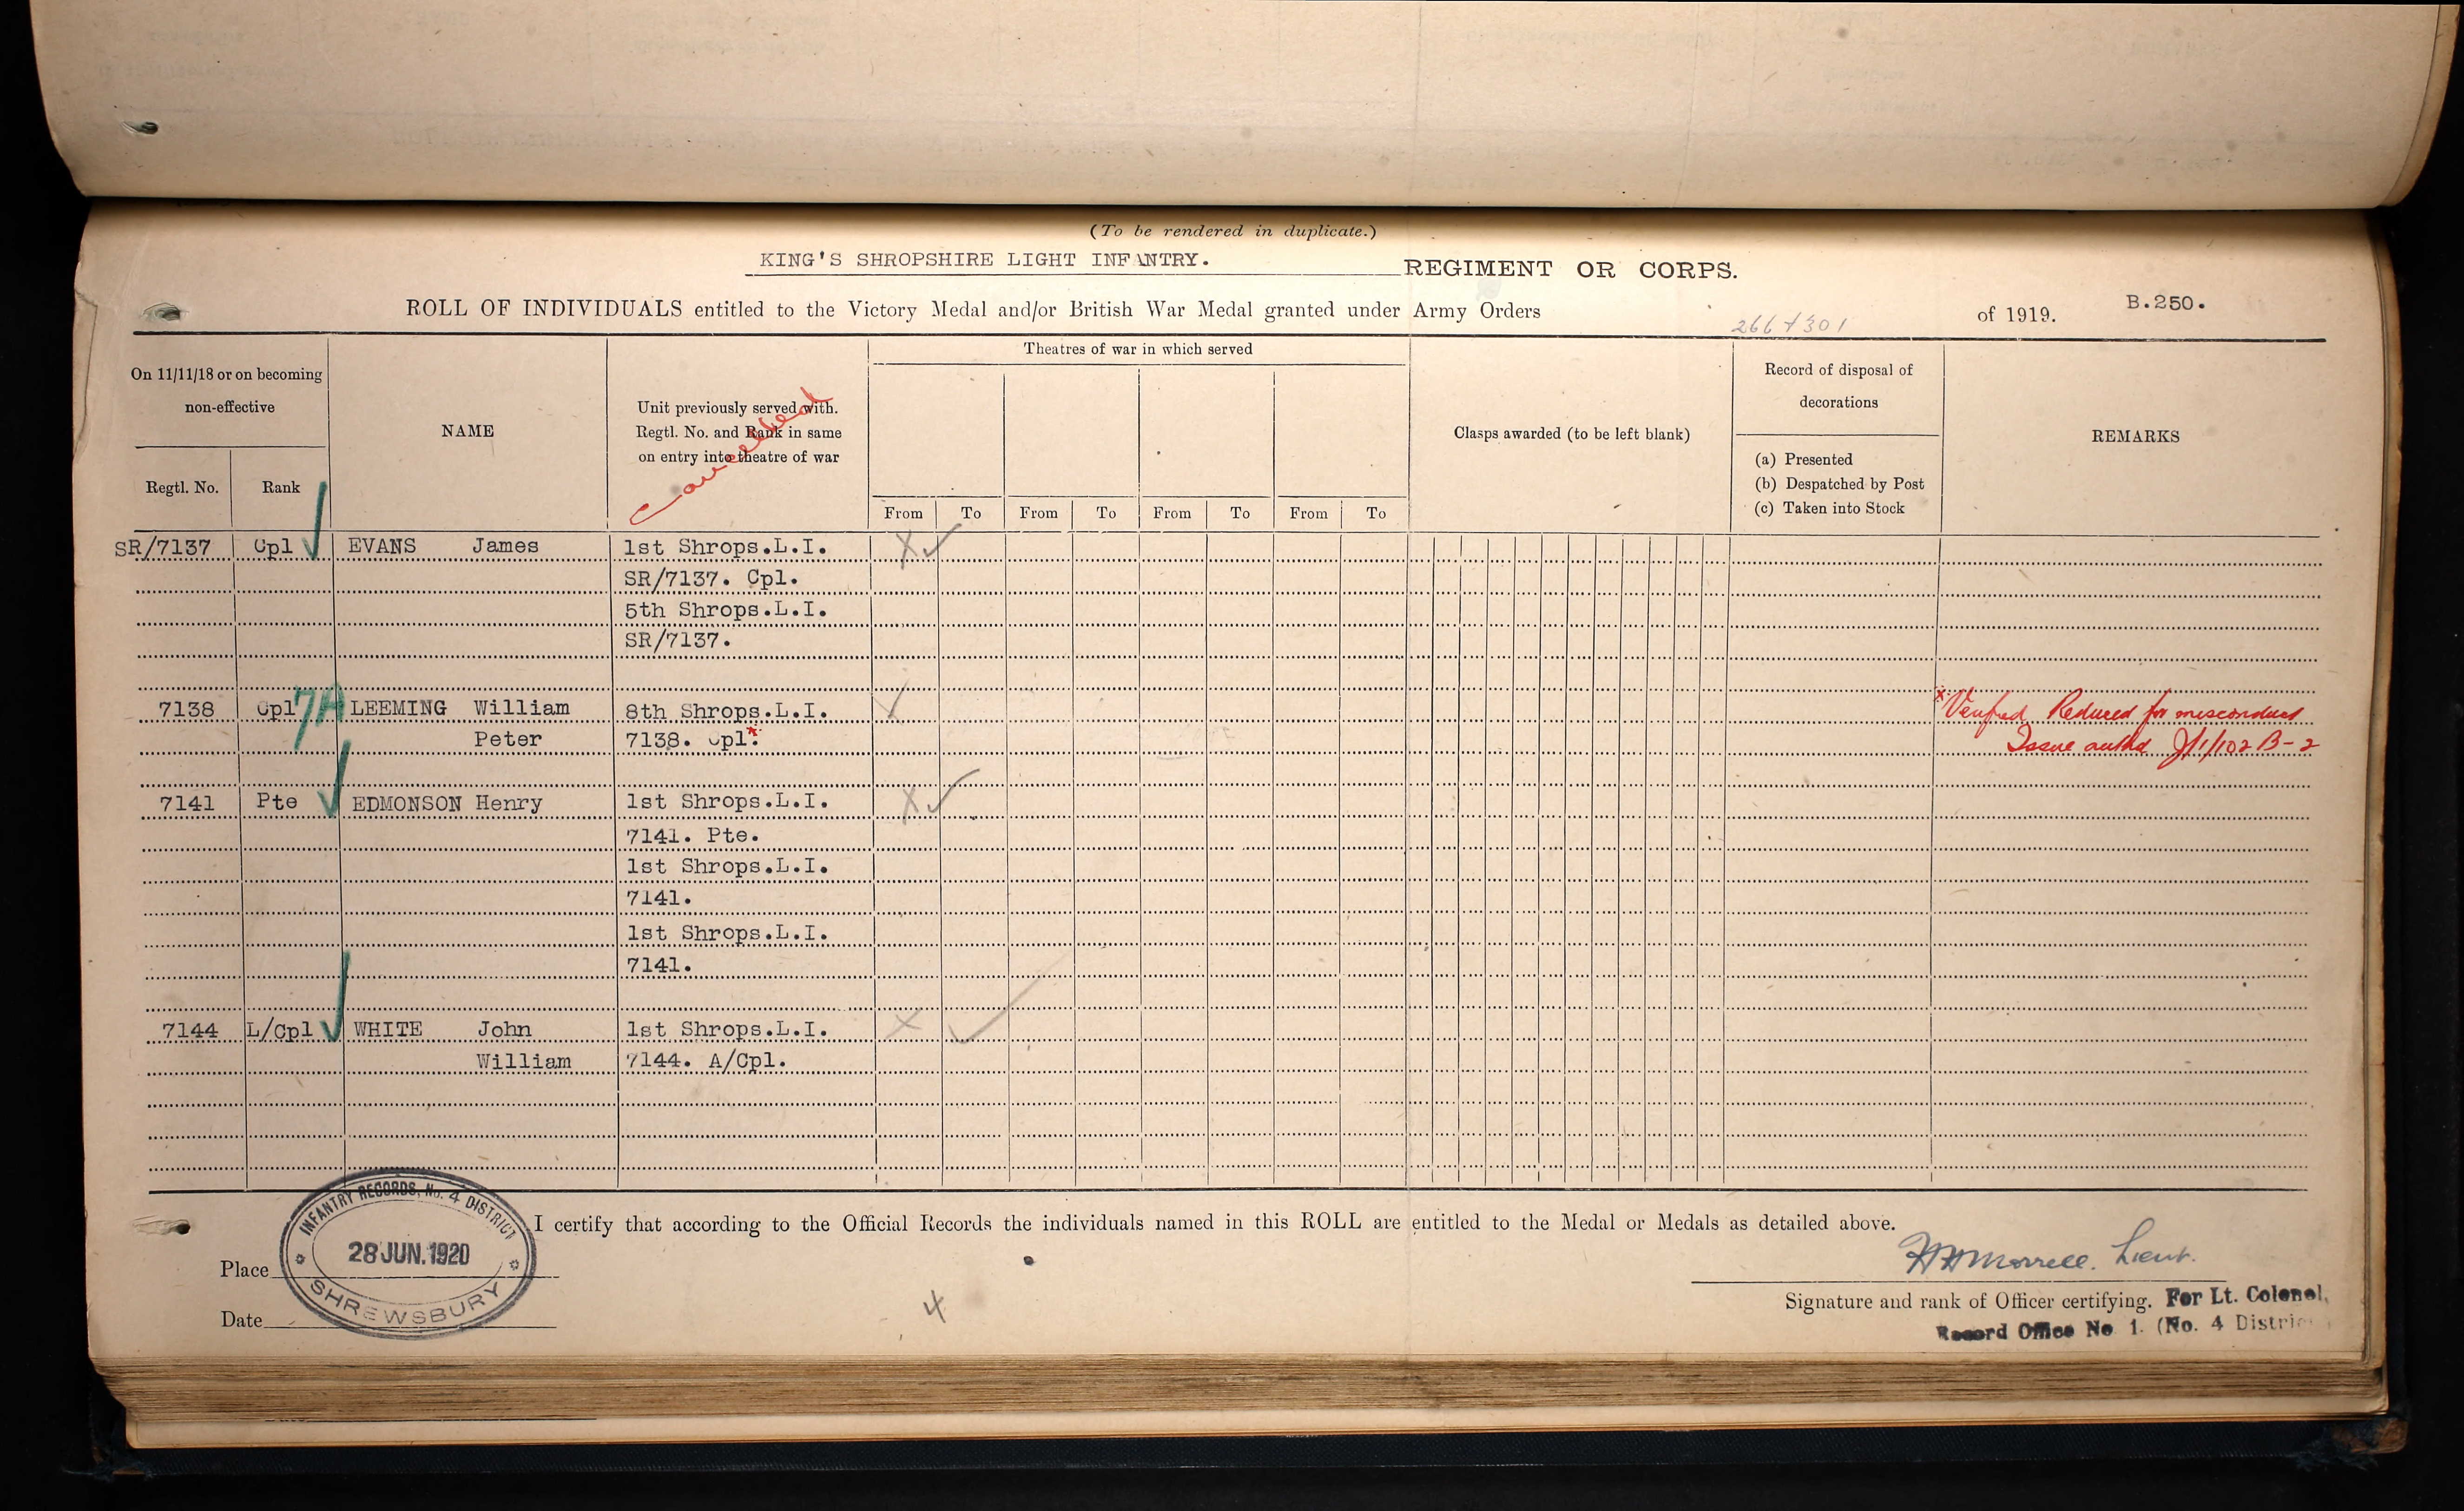 (To be rendered in duplicate.)
KING'S SHROPSHIRE LIGHT INFANTRY. REGIMENT OR CORPS.
ROLL OF INDIVIDUALS entitled to the Victory Medal and/or British War Medal granted under Army Orders 266 + 301 of 1919. B.250.
On 11/11/18 or on becoming non-effective
Regtl. No.
Rank
NAME
Unit previously served with.
Regtl. No. and Rank in same
on entry into theatre of war
Cancelled
Theatres of war in which served
From To From To From To From To
Clasps awarded (to be left blank)
Record of disposal of
decorations
(a) Presented
(b) Despatched by Post
(c) Taken into Stock
REMARKS
SR/7137 Cpl EVANS James 1st Shrops.L.I. X
SR/7137. Cpl.
5th Shrops.L.I.
SR/7137.
7138 Cpl 7A LEEMING William 8th Shrops.L.I. x Verified Reduced for misconduct
Peter 7138. Cpl. x Issue authd J/1/102 B-2
7141 Pte EDMONSON Henry 1st Shrops.L.I. X
7141. Pte.
1st Shrops.L.I.
7141.
1st Shrops.L.I.
7141.
7144 L/Cpl WHITE John 1st Shrops.L.I. X
William 7144. A/Cpl.
I certify that according to the Official Records the individuals named in this ROLL are entitled to the Medal or Medals as detailed above.
INFANTRY RECORDS, No. 4 DISTRICT
28 JUN. 1920
SHREWSBURY
Place
Date
4
Morrell. Lieut.
Signature and rank of Officer certifying. For Lt. Colonel,
Record Office No 1. (No. 4 Distric